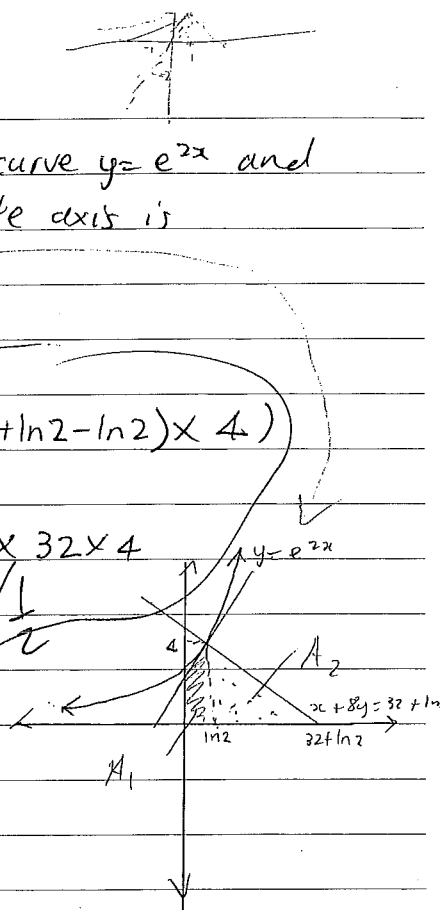 -1 1
-2
curve y= e^{2x} and
axis is
+ln2-ln2)× 4)
× 32×4
1/2
y=e^{2x}
4
A_2
x +8y=32 +ln
ln2 32+ln2
A_1